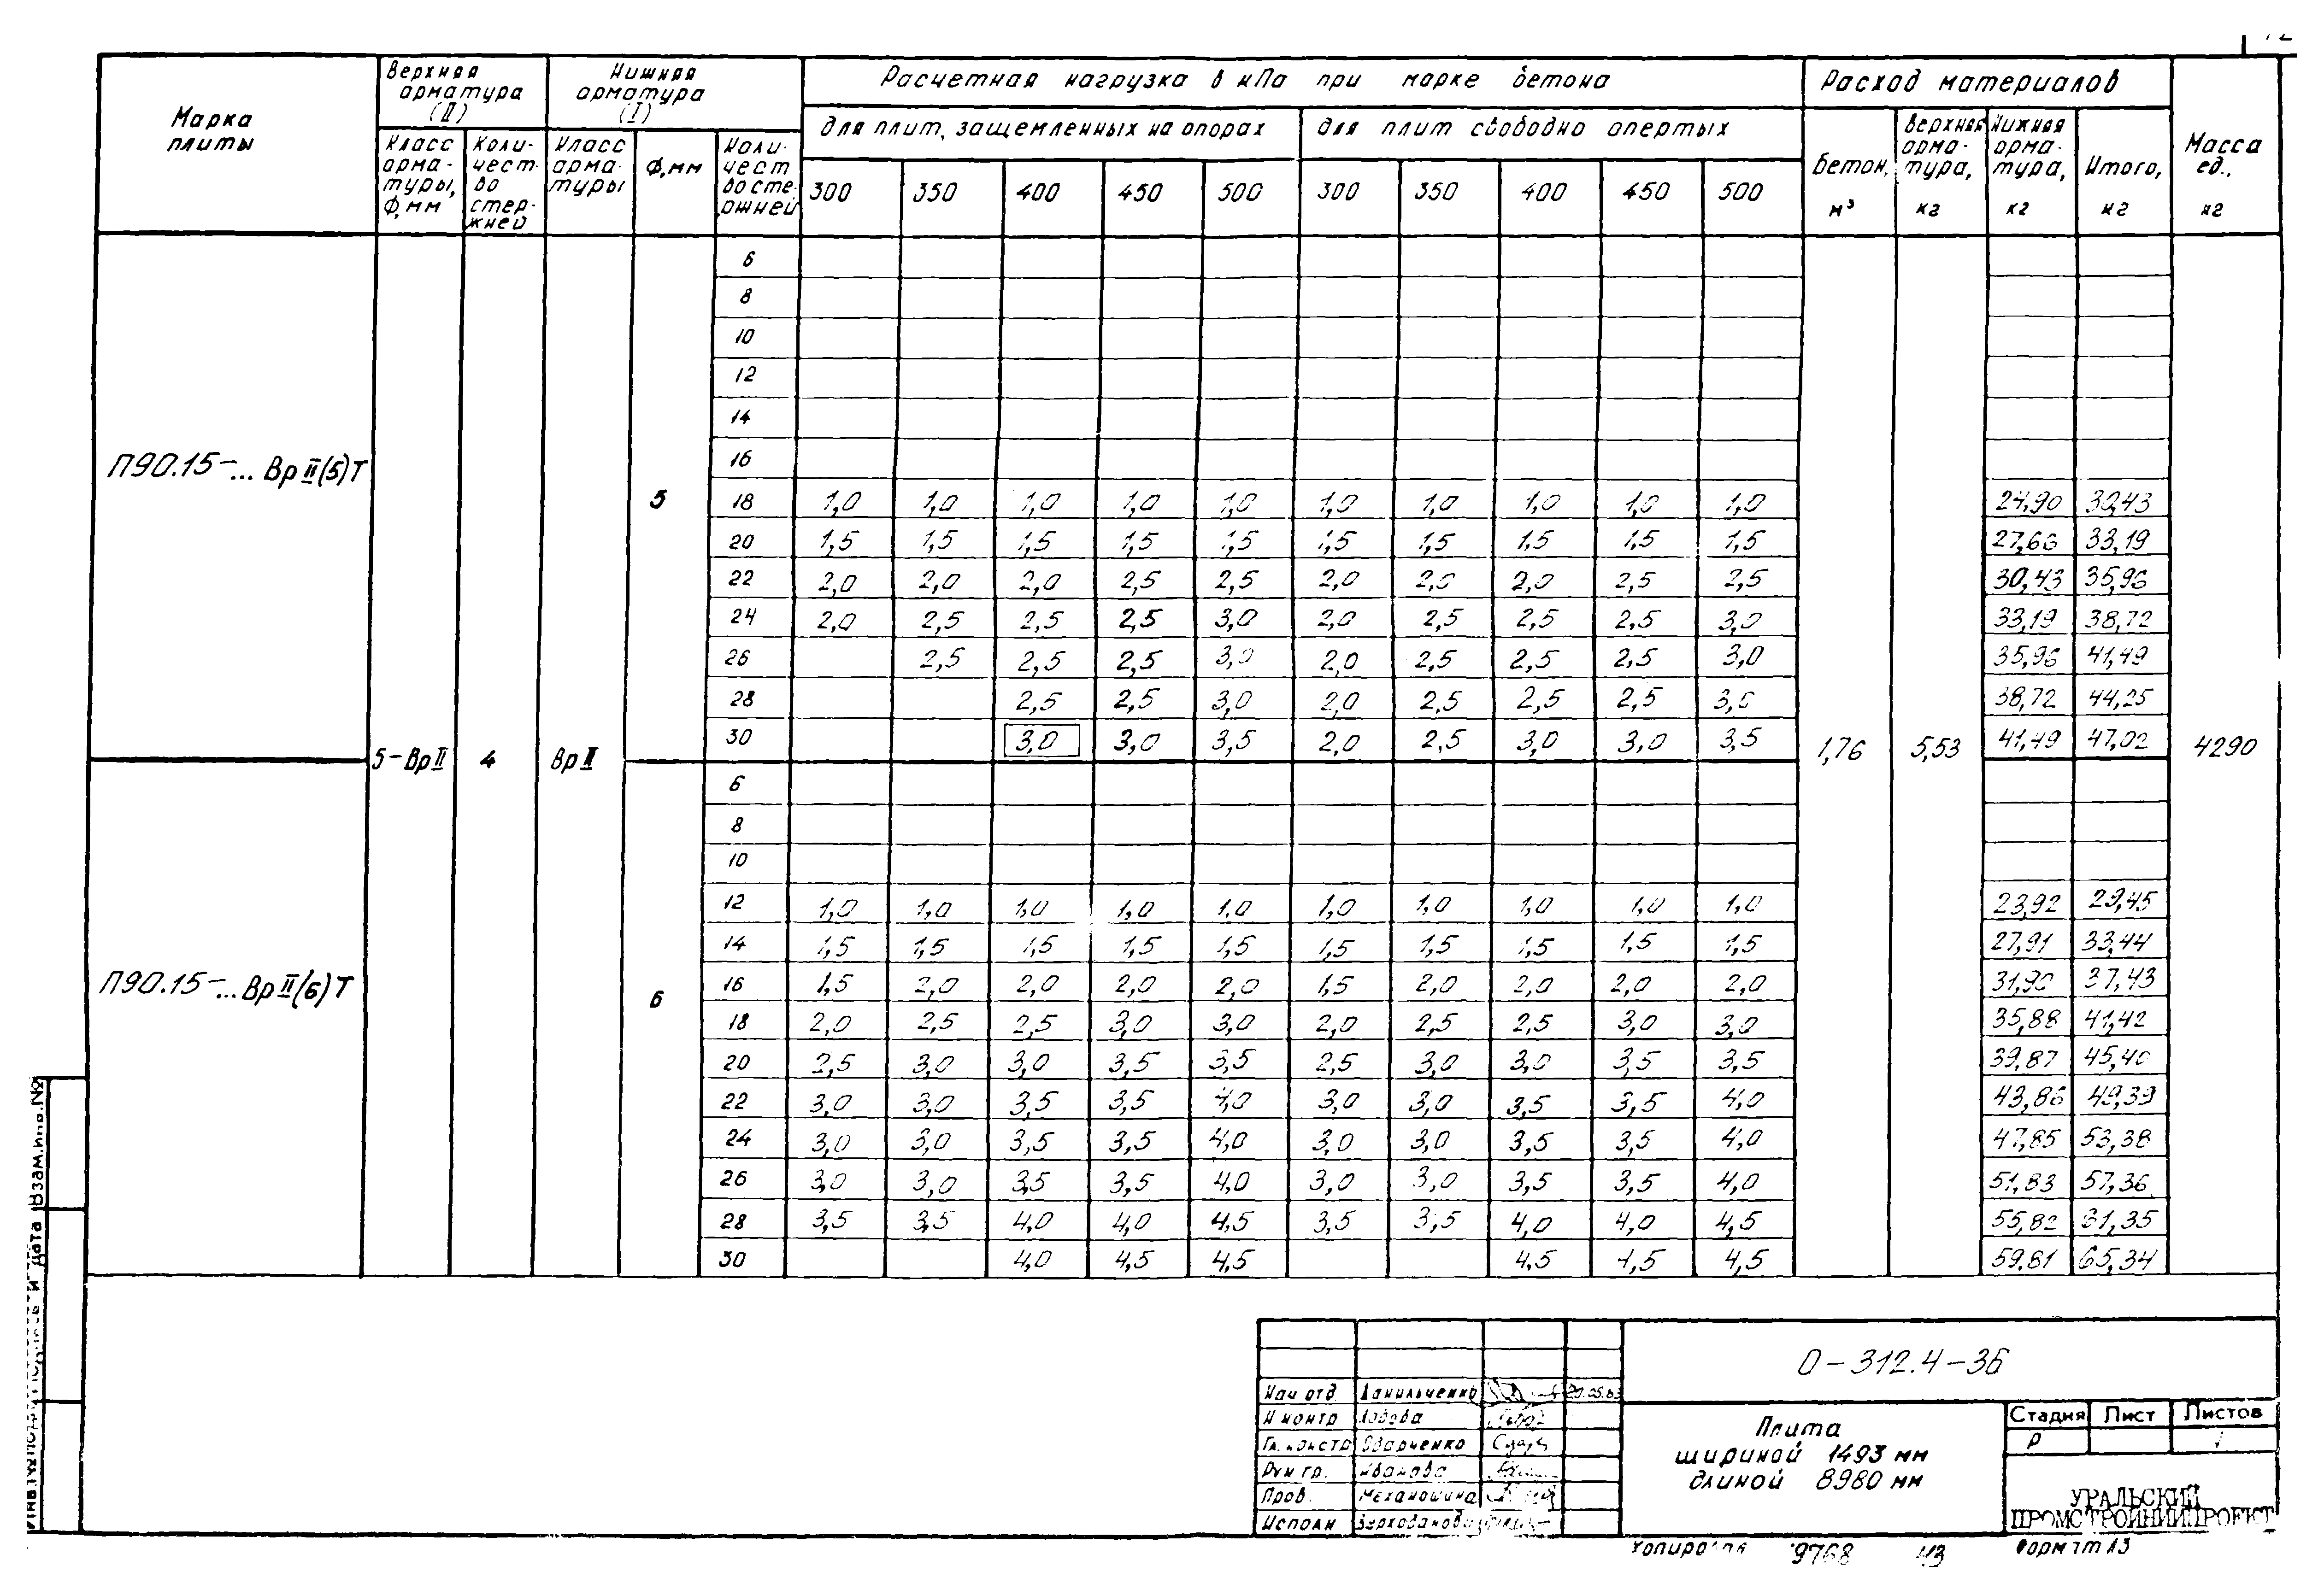 Марка плиты
Верхняя арматура (II)
Нижняя арматура (I)
Расчетная нагрузка в кПа при марке бетона
Расход материалов
Масса ед., кг
Класс арматуры, Ф,мм
Количество стержней
Класс арматуры
Ф,мм
Количество стержней
для плит, защемленных на опорах
для плит свободно опертых
Бетон, м³
Верхняя арматура, кг
Нижняя арматура, кг
Итого, кг
300 350 400 450 500 300 350 400 450 500
П90.15-... Вр II(5)Т
5
6
8
10
12
14
16
18 1,0 1,0 1,0 1,0 1,0 1,0 1,0 1,0 1,0 1,0 24,90 30,43
20 1,5 1,5 1,5 1,5 1,5 1,5 1,5 1,5 1,5 1,5 27,66 33,19
22 2,0 2,0 2,0 2,5 2,5 2,0 2,0 2,0 2,5 2,5 30,43 35,96
24 2,0 2,5 2,5 2,5 3,0 2,0 2,5 2,5 2,5 3,0 33,19 38,72
26 2,5 2,5 2,5 3,0 2,0 2,5 2,5 2,5 3,0 35,96 41,49
28 2,5 2,5 3,0 2,0 2,5 2,5 2,5 3,0 38,72 44,25
30 3,0 3,0 3,5 2,0 2,5 3,0 3,0 3,5 41,49 47,02
5-Вр II 4 Вр II 1,76 5,53 4290
П90.15-... Вр II(6)Т
6
6
8
10
12 1,0 1,0 1,0 1,0 1,0 1,0 1,0 1,0 1,0 1,0 23,92 29,45
14 1,5 1,5 1,5 1,5 1,5 1,5 1,5 1,5 1,5 1,5 27,91 33,44
16 1,5 2,0 2,0 2,0 2,0 1,5 2,0 2,0 2,0 2,0 31,90 37,43
18 2,0 2,5 2,5 3,0 3,0 2,0 2,5 2,5 3,0 3,0 35,88 41,42
20 2,5 3,0 3,0 3,5 3,5 2,5 3,0 3,0 3,5 3,5 39,87 45,40
22 3,0 3,0 3,5 3,5 4,0 3,0 3,0 3,5 3,5 4,0 43,86 49,39
24 3,0 3,0 3,5 3,5 4,0 3,0 3,0 3,5 3,5 4,0 47,85 53,38
26 3,0 3,0 3,5 3,5 4,0 3,0 3,0 3,5 3,5 4,0 51,83 57,36
28 3,5 3,5 4,0 4,0 4,5 3,5 3,5 4,0 4,0 4,5 55,82 61,35
30 4,0 4,5 4,5 4,5 4,5 4,5 59,81 65,34
Взам.инв.№
О-312.4-36
Нач отд Данильченко
Н контр Лобова
Гл. констр Одарченко
Рук гр. Иванова
Пров. Механошина
Исполн
Плита
шириной 1493 мм
длиной 8980 мм
Стадия Лист Листов
Р 1
УРАЛЬСКИЙ
ПРОМСТРОЙНИИПРОЕКТ
Копировал 9768 43 Формат А3